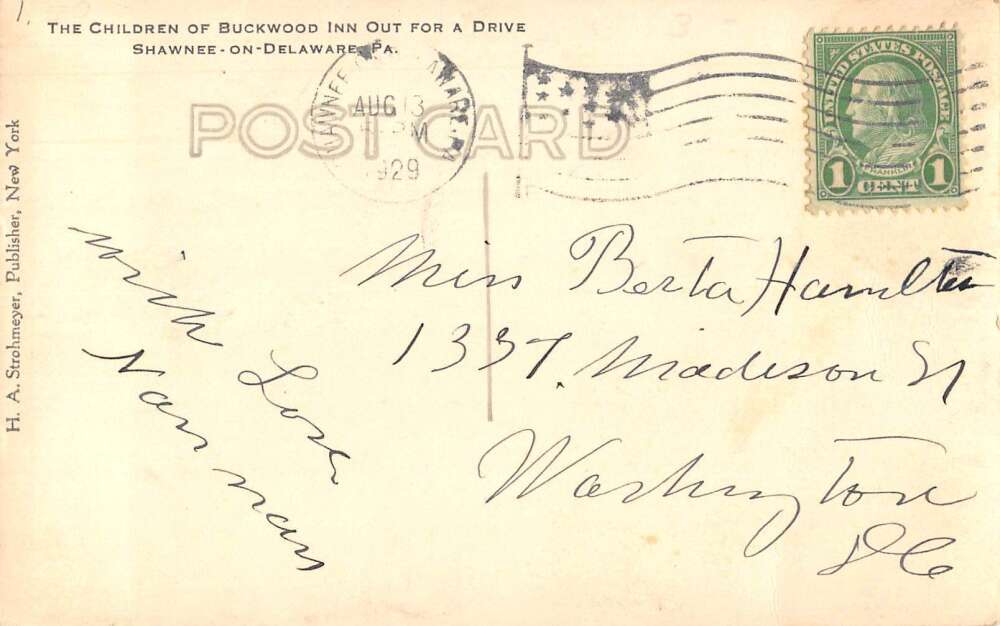 THE CHILDREN OF BUCKWOOD INN OUT FOR A DRIVE
SHAWNEE-ON-DELAWARE, PA.
POST CARD
AUG 13
PM
1929
UNITED STATES POSTAGE
FRANKLIN
1 CENT 1
H. A. Strohmeyer, Publisher, New York
with Love
Miss Berta Hamilton
1337 Madison St
Washington
DC